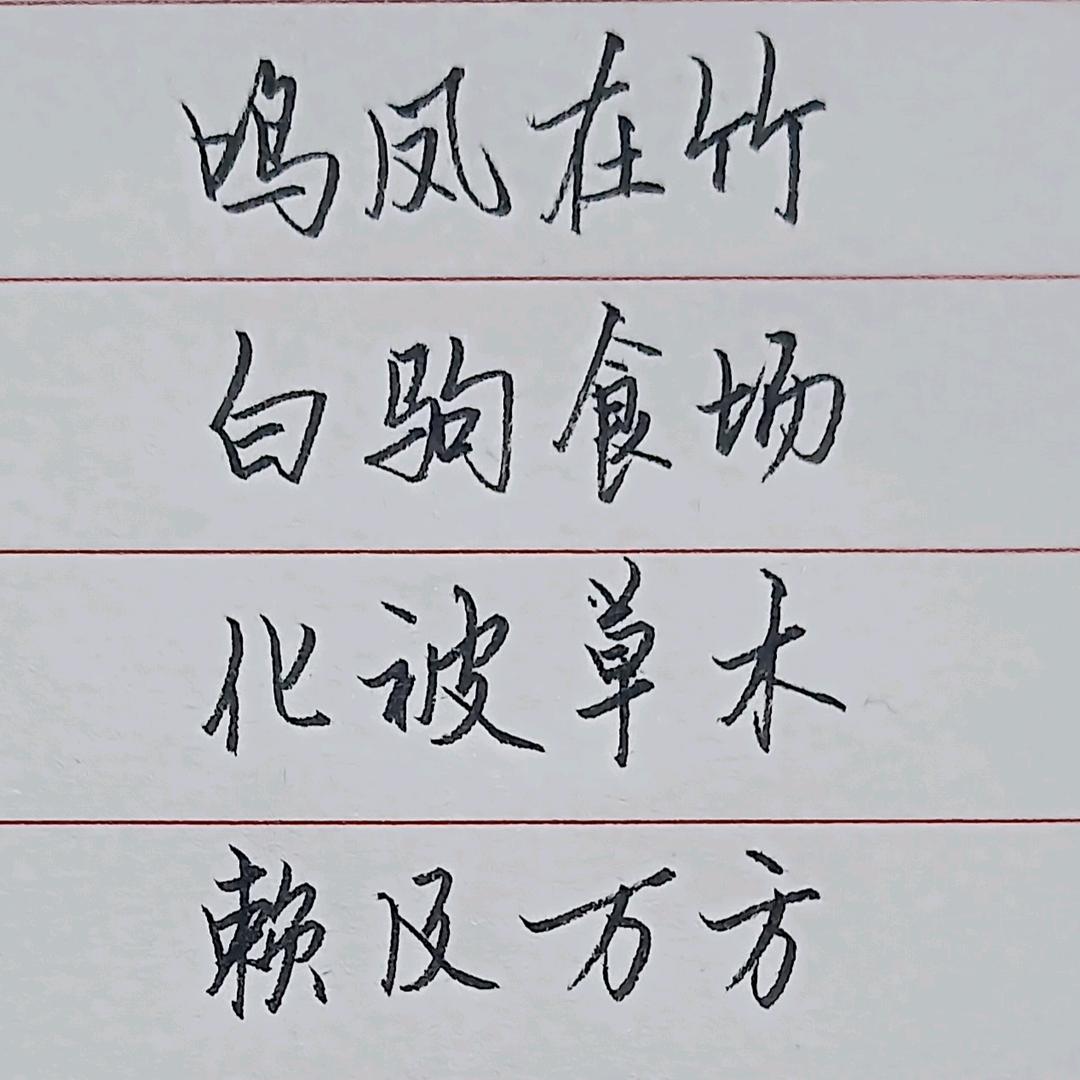 鸣凤在竹
白驹食场
化被草木
赖及万方